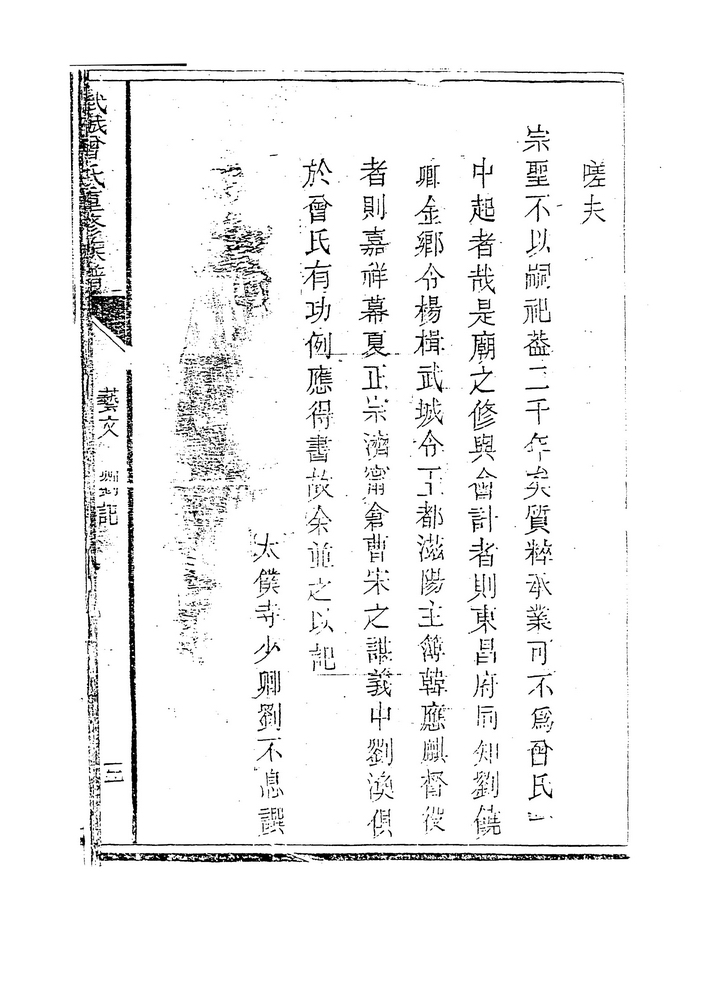 嗟夫
宗聖不以嗣祀葢二千年矣質粹承業可不爲曾氏一
中起者哉是廟之修與會計者則東昌府同知劉饒
卿金鄉令楊楫武城令王都滋陽主簿韓應麒督役
者則嘉祥幕夏正宗濟甯倉曹宋之謀義中劉渙俱
於曾氏有功例應得書故余並之以記
太僕寺少卿劉不息譔
武城曾氏重修族譜
藝文
記
三